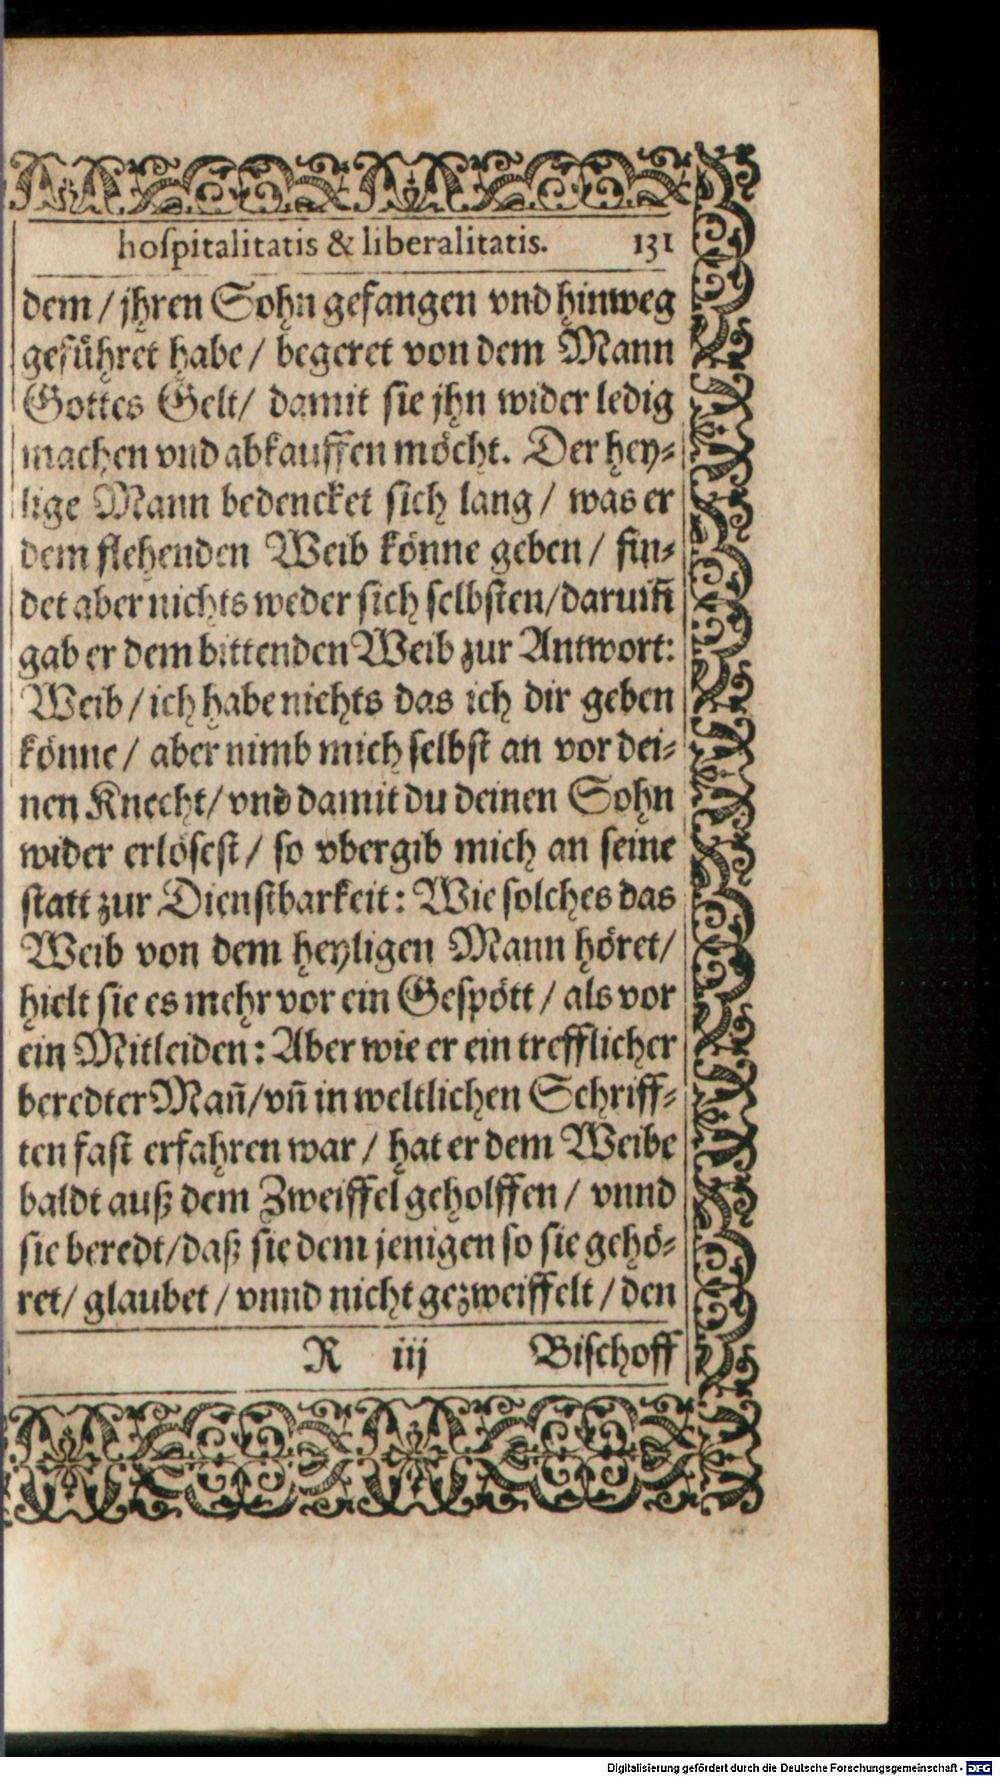 hoſpitalitatis & liberalitatis. 131
dem / jhren Sohn gefangen vnd hinweg
geführet habe / begeret von dem Mann
Gottes Gelt / damit ſie jhn wider ledig
machen vnd abkauffen möcht. Der hey⸗
lige Mann bedencket ſich lang / was er
dem flehenden Weib könne geben / fin⸗
det aber nichts weder ſich ſelbſten / darum̃
gab er dem bittenden Weib zur Antwort:
Weib / ich habe nichts das ich dir geben
könne / aber nimb mich ſelbſt an vor dei⸗
nen Knecht / vnd damit du deinen Sohn
wider erlöſeſt / ſo vbergib mich an ſeine
ſtatt zur Dienſtbarkeit: Wie ſolches das
Weib von dem heyligen Mann höret /
hielt ſie es mehr vor ein Geſpött / als vor
ein Mitleiden: Aber wie er ein trefflicher
beredter Mañ / vñ in weltlichen Schriff⸗
ten faſt erfahren war / hat er dem Weibe
baldt auß dem Zweiffel geholffen / vnnd
ſie beredt / daß ſie dem jenigen ſo ſie gehö⸗
ret / glaubet / vnnd nicht gezweiffelt / den
R iij Biſchoff
Digitalisierung gefördert durch die Deutsche Forschungsgemeinschaft - DFG